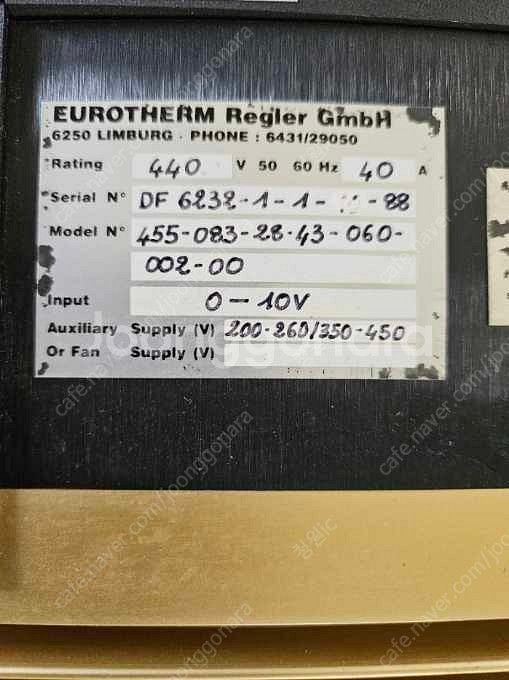 EUROTHERM Regler GmbH
6250 LIMBURG · PHONE : 6431/29050
Rating 440 V 50 60 Hz 40 A
Serial N° DF 6232-1-1- -88
Model N° 455-083-28-43-060-
002-00
Input 0-10V
Auxiliary Supply (V) 200-260/350-450
Or Fan Supply (V)
joonggonara
cafe.naver.com/joonggonara